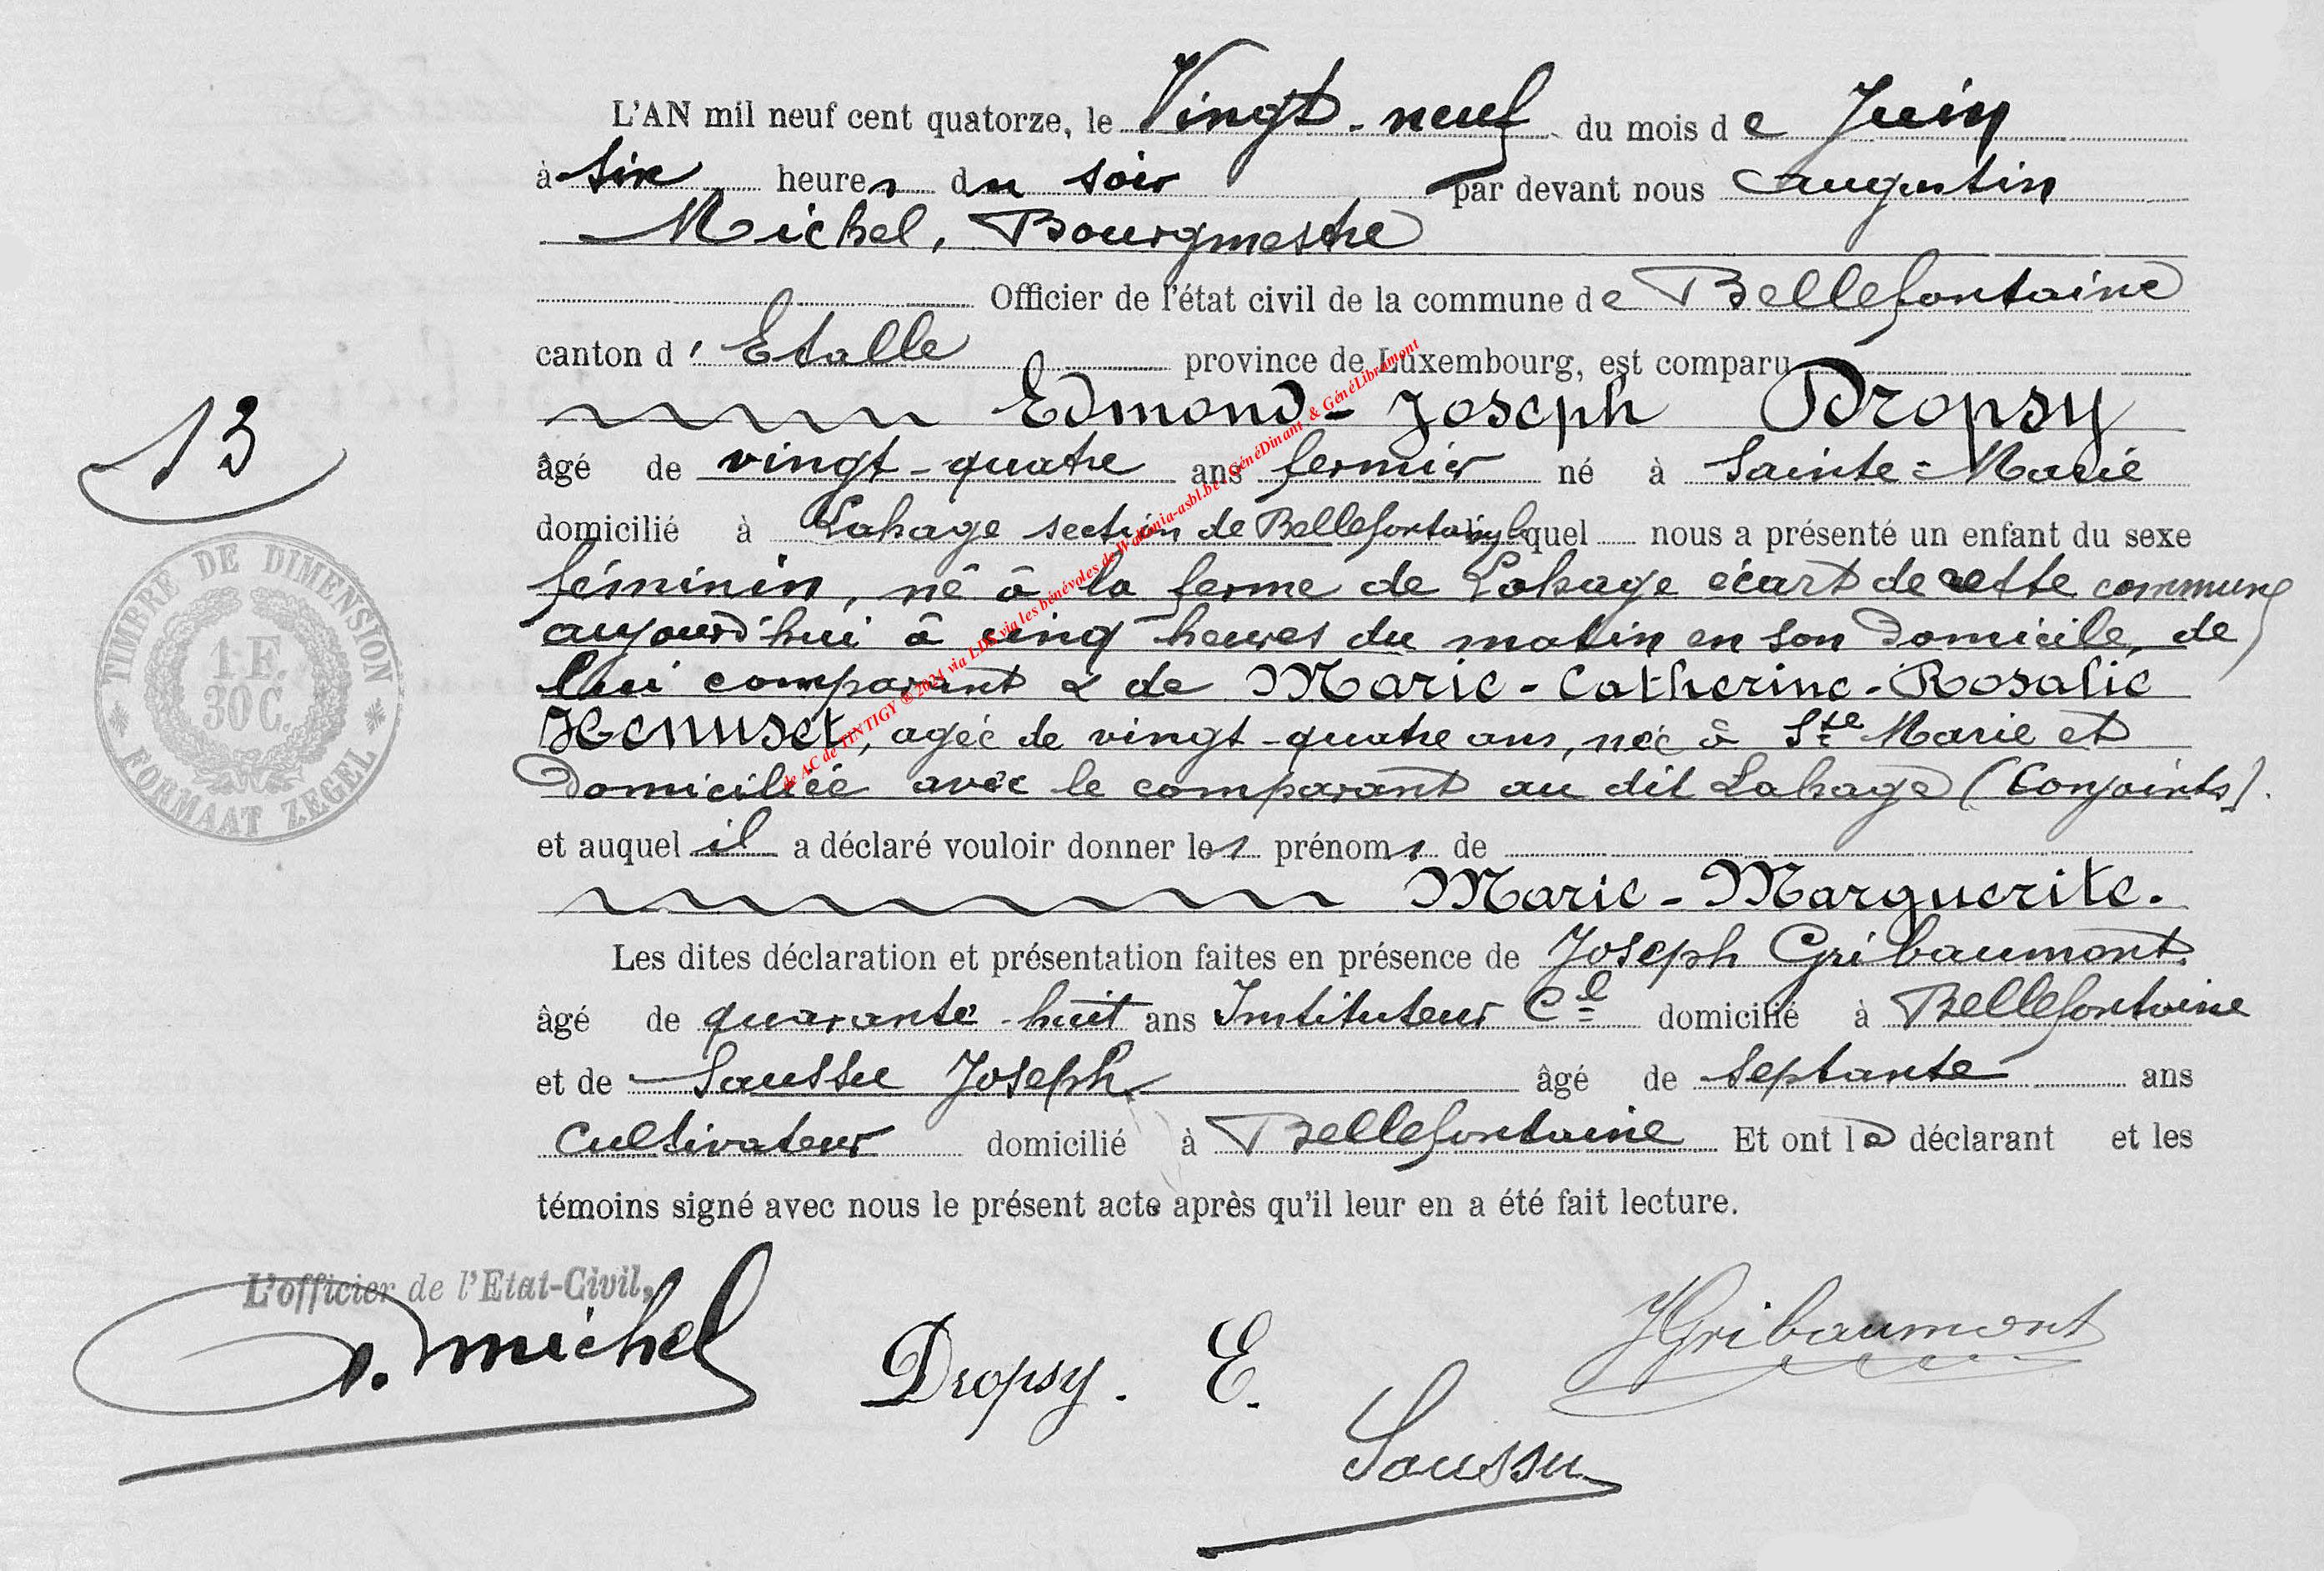 L'AN mil neuf cent quatorze, le Vingt-neuf du mois de Juin
à six heures du soir par devant nous Augustin
Michel, Bourgmestre
Officier de l'état civil de la commune de Bellefontaine
canton d'Etalle province de Luxembourg, est comparu
Edmond-Joseph Dropsy
âgé de vingt-quatre ans fermier né à Sainte-Marie
domicilié à Lahage section de Bellefontaine lequel nous a présenté un enfant du sexe
féminin, né à la ferme de Lahage écart de cette commune
aujourd'hui à cinq heures du matin en son domicile, de
lui comparant & de Marie-Catherine-Rosalie
Henuset, agée de vingt-quatre ans, née à Ste Marie et
domiciliée avec le comparant au dit Lahage (Conjoints).
et auquel il a déclaré vouloir donner les prénoms de
Marie-Marguerite.
Les dites déclaration et présentation faites en présence de Joseph Gribaumont
âgé de quarante-huit ans Instituteur Cl domicilié à Bellefontaine
et de Saussu Joseph âgé de septante ans
cultivateur domicilié à Bellefontaine Et ont le déclarant et les
témoins signé avec nous le présent acte après qu'il leur en a été fait lecture.
13
TIMBRE DE DIMENSION
1 F.
30 C.
FORMAAT ZEGEL
de AC de TINTIGY ® 2024 via LDS via les bénévoles de Wallonia-asbl.be - GénéDinant & GénéLibramont
L'officier de l'Etat-Civil,
A. Michel
Dropsy. E.
JGribaumont
Saussu